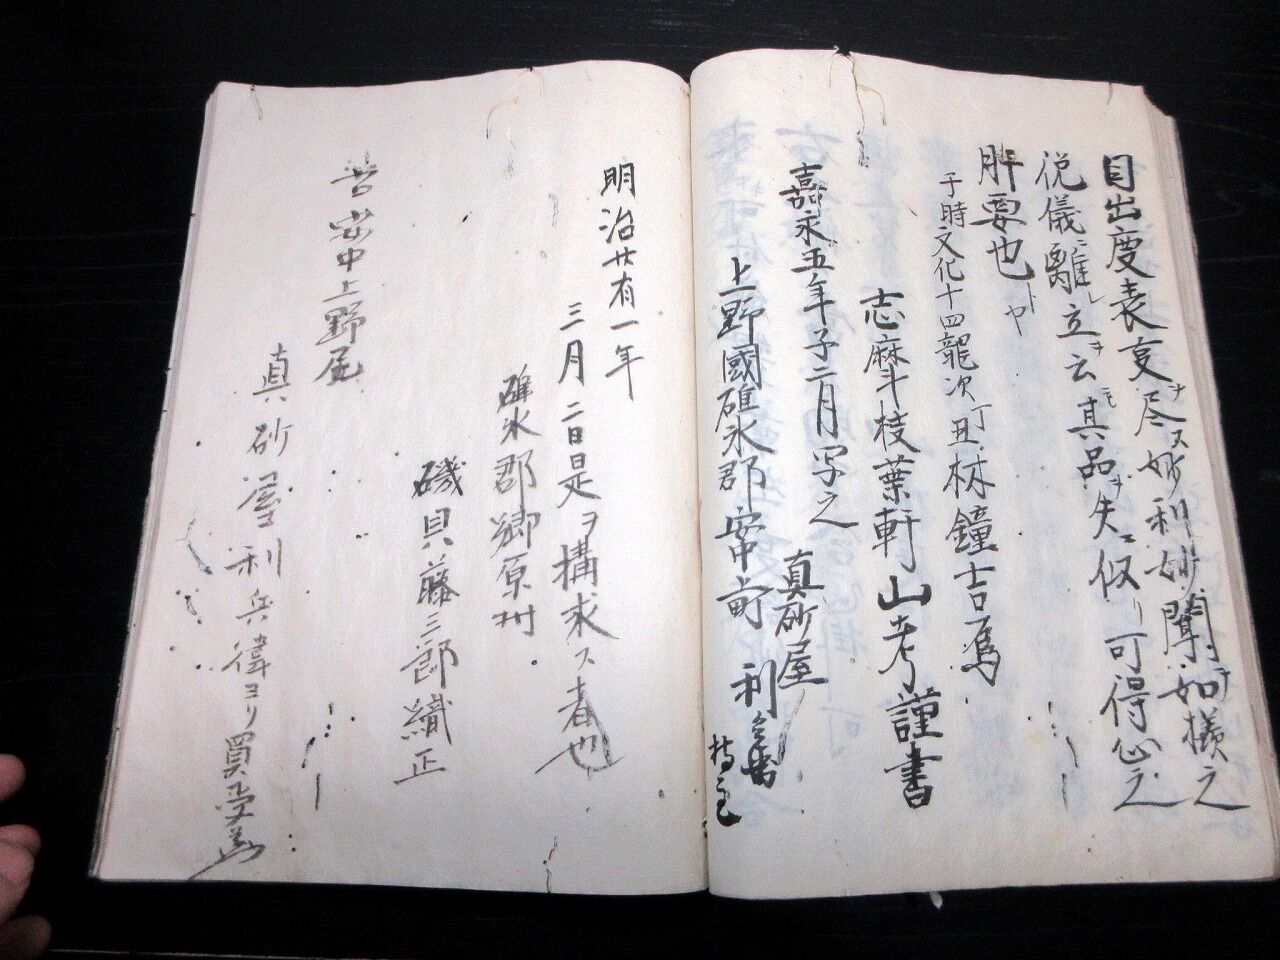 目出度表変ナ尽ス妙利妙聞如様之
侻儀離レ立ヲ云其品ヲ失仅リ可得心之
肝要也トヤ
于時文化十四龍次丁丑林鐘吉焉
志麻斗枝葉軒山考謹書
嘉永五年子二月写之
真砂屋
上野國碓氷郡安中町 利兵衛
持主
明治廿有一年
三月二日是ヲ構求ス者也
碓氷郡郷原村
磯貝藤三郎織正
昔安中上野尻
真砂屋利兵衛ヨリ買受為